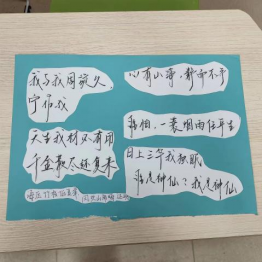 我与我周旋久
宁作我
天生我材必有用
千金散尽还复来
心有山海，静而不争
我自，一蓑烟雨任平生
日上三竿我独眠
谁是神仙？我是神仙